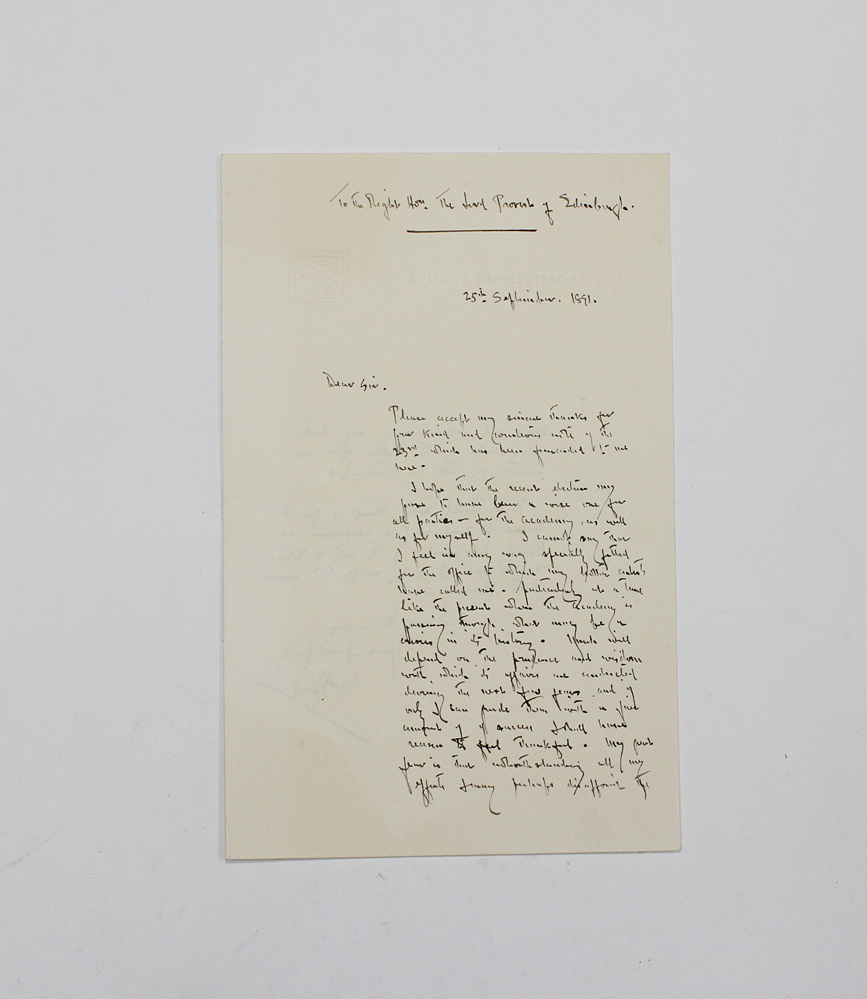 To The Right Hon. The Lord Provost of Edinburgh.
25th September. 1891.
Dear Sir.
Please accept my sincere thanks for
your kind and courteous note of the
23rd which has been forwarded to me
here.
I hope that the recent election may
prove to have been a wise one for
all parties – for the academy, as well
as for myself. I cannot say that
I feel in any way specially fitted
for the office to which my brother artists
have called me. particularly at a time
like the present when the Academy is
passing through what may be a
crisis in its history. Much will
depend on the prudence and wisdom
with which its affairs are conducted
during the next few years and if
only I can guide them with a fair
amount of success I shall have
reason to feel thankful. My great
fear is that notwithstanding all my
efforts I may perhaps disappoint the